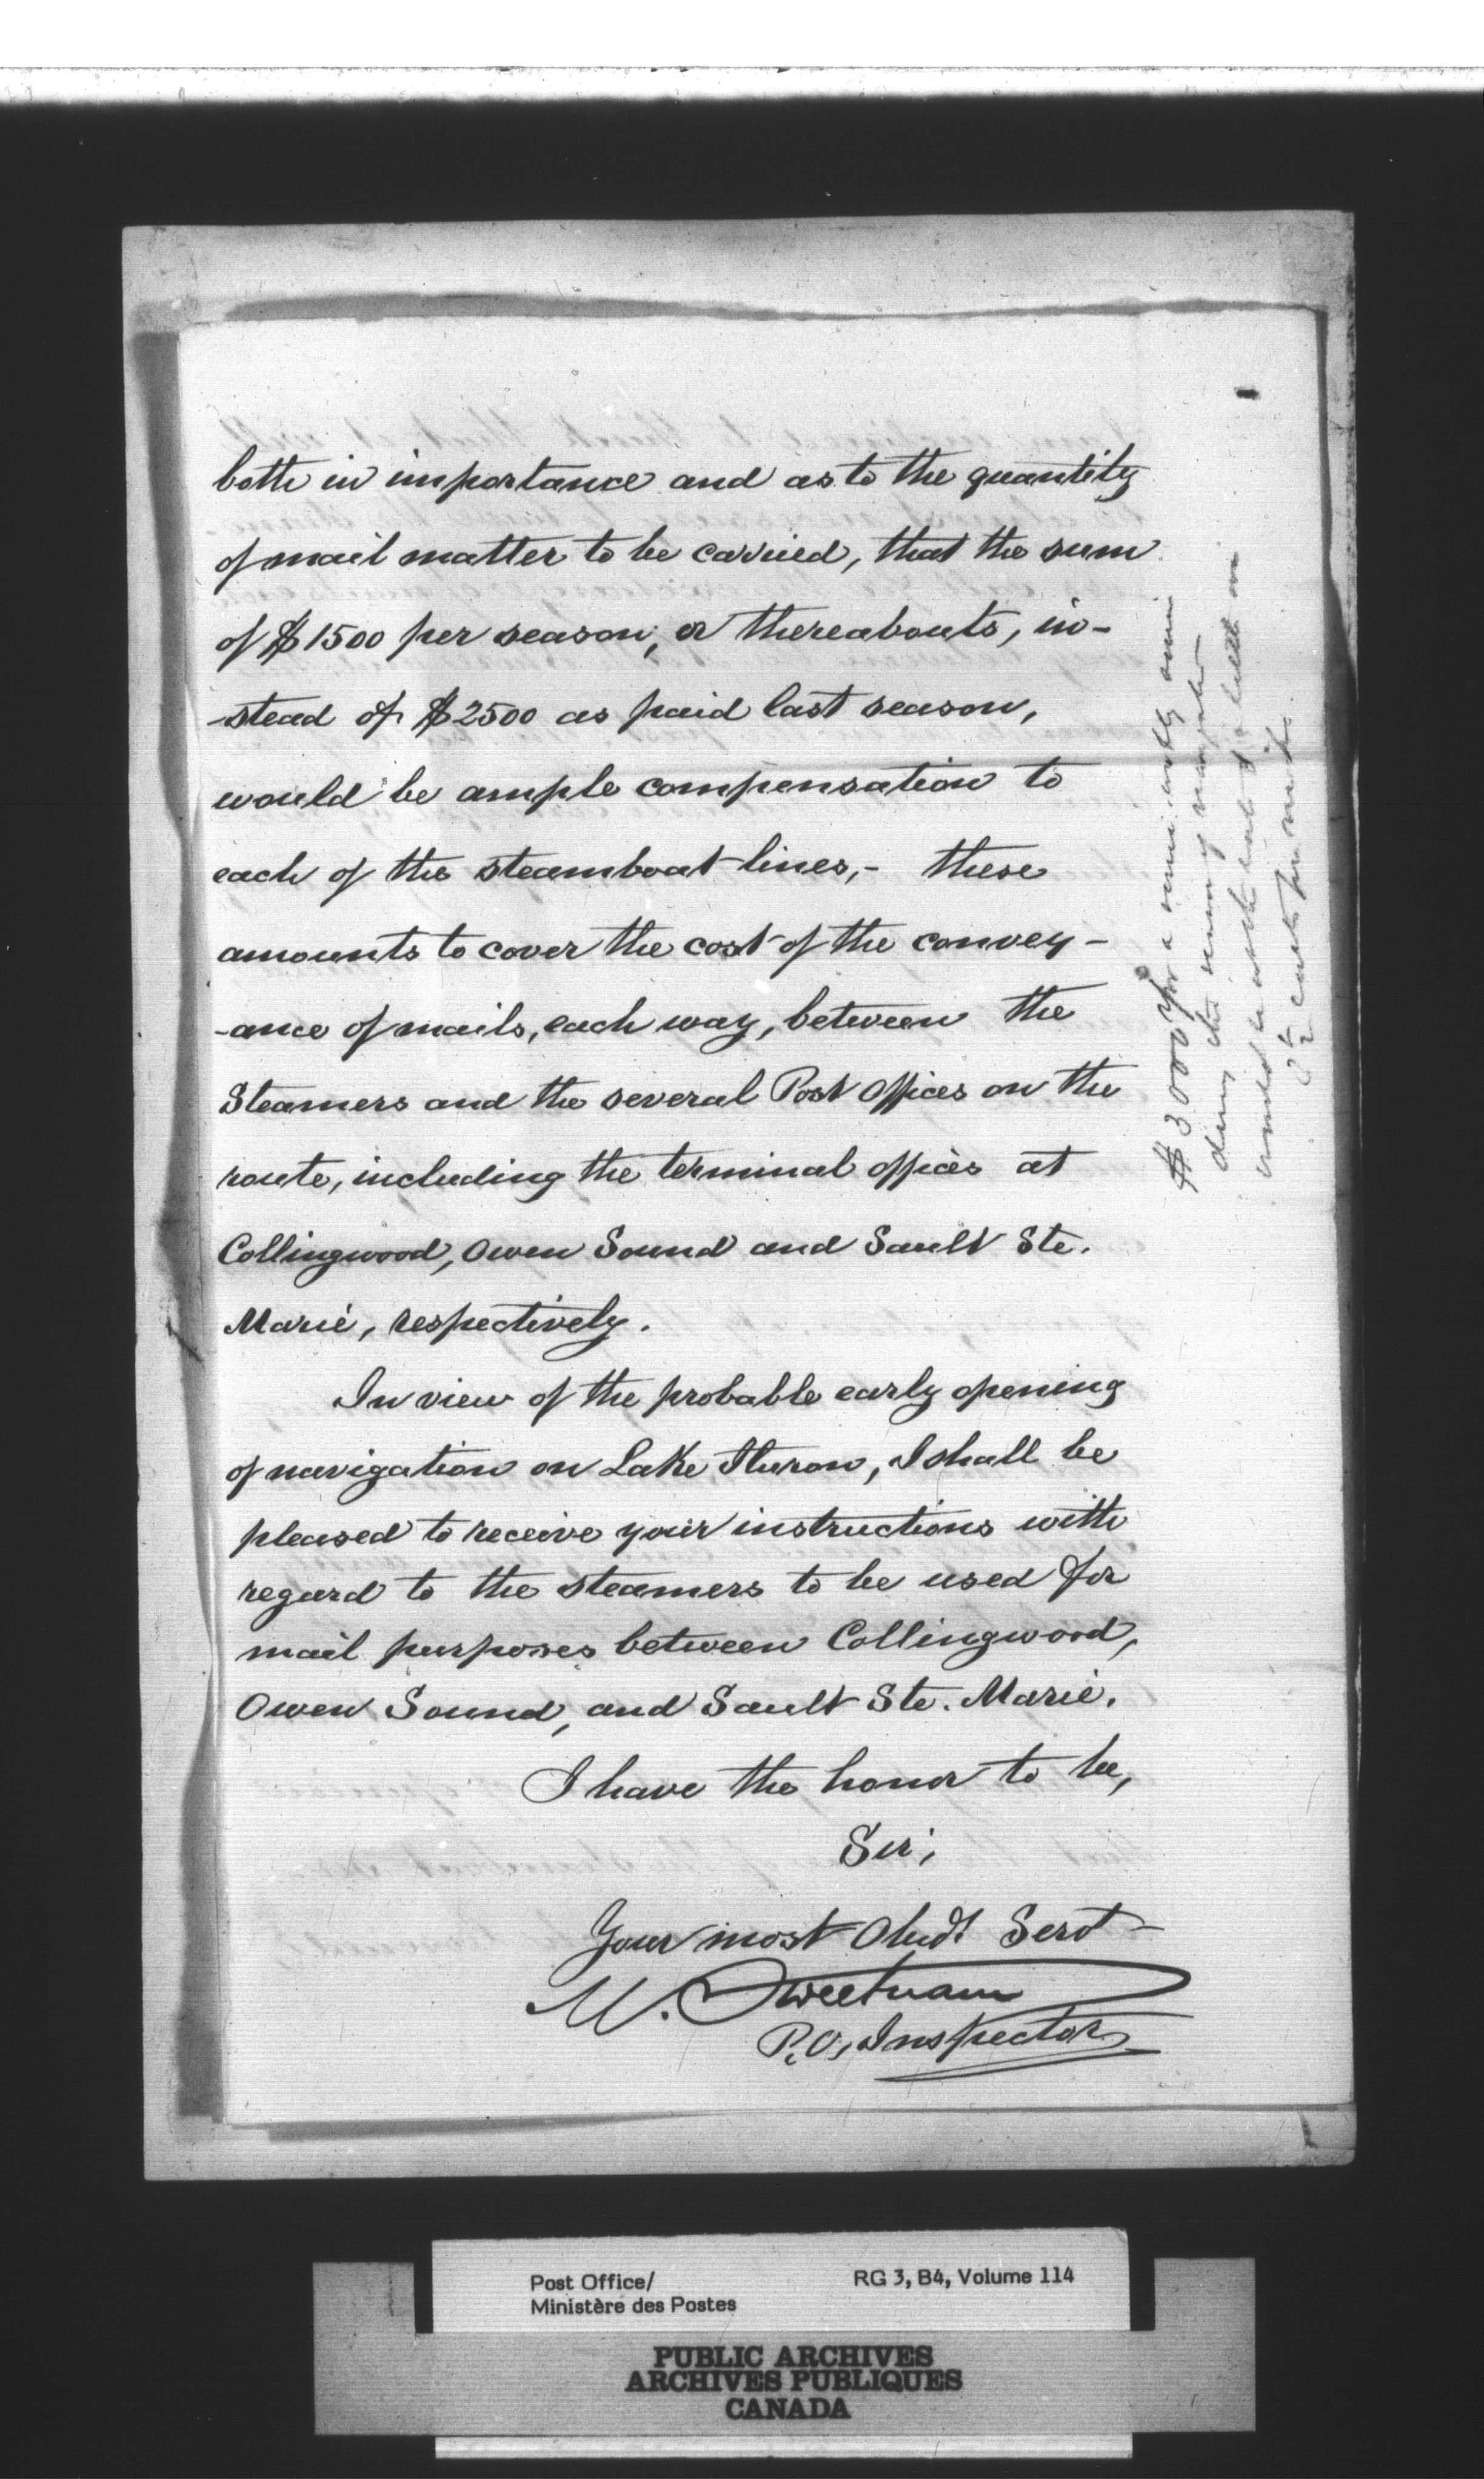 both in importance and as to the quantity
of mail matter to be carried, that the sum
of $1500 per season, or thereabouts, in-
-stead of $2500 as paid last season,
would be ample compensation to
each of the steamboat lines,- these
amounts to cover the cost of the convey-
-ance of mails, each way, between the
Steamers and the several Post Offices on the
route, including the terminal offices at
Collingwood, Owen Sound and Sault Ste.
Marie, respectively.
In view of the probable early opening
of navigation on Lake Huron, I shall be
pleased to receive your instructions with
regard to the steamers to be used for
mail purposes between Collingwood,
Owen Sound, and Sault Ste. Marie.
I have the honor to be,
Sir,
Your most Obedt Servt
M. Sweetnam
P.O. Inspector
$3000 for a semi weekly
during the season of navigation
would be at the rate of a little
cents per mile.
Post Office/
Ministère des Postes
RG 3, B4, Volume 114
PUBLIC ARCHIVES
ARCHIVES PUBLIQUES
CANADA